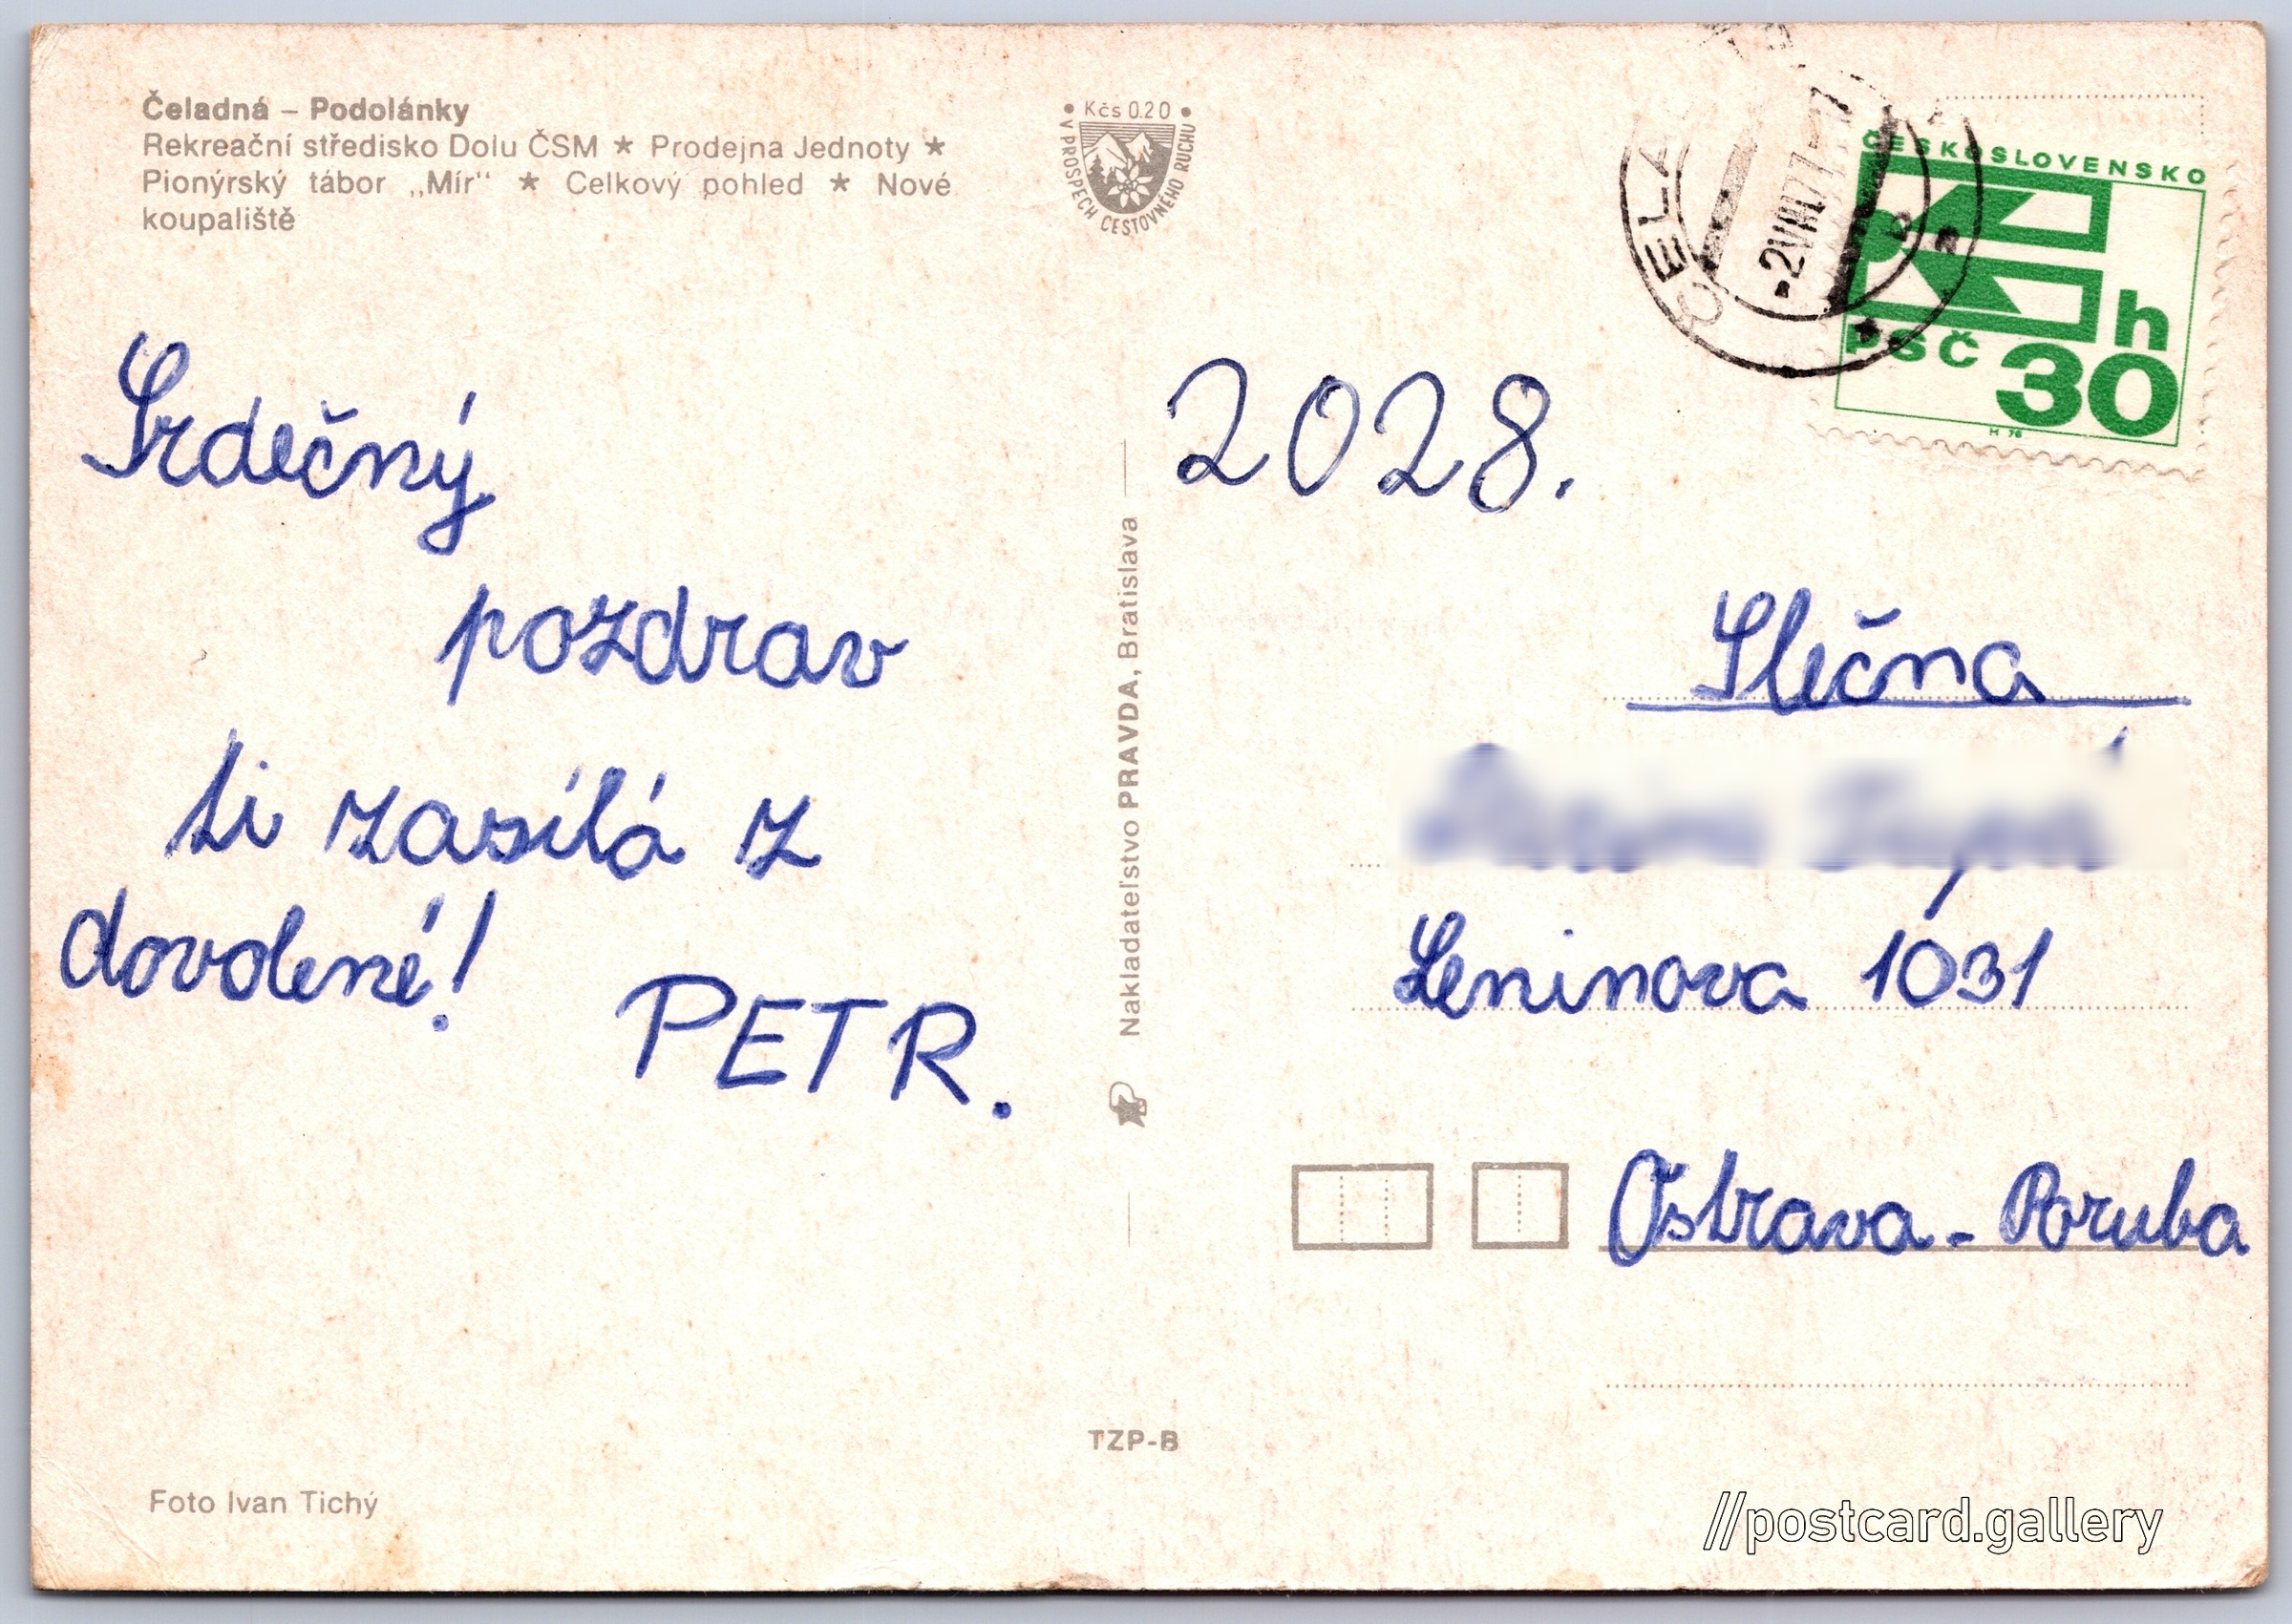 Čeladná – Podolánky
Rekreační středisko Dolu ČSM ★ Prodejna Jednoty ★
Pionýrský tábor „Mír" ★ Celkový pohled ★ Nové
koupaliště
• Kčs 0.20 •
V PROSPECH CESTOVNÉHO RUCHU
-2.VIII.77-17
ČESKOSLOVENSKO
h
PSČ 30
Srdečný
pozdrav
ti zasílá z
dovolené!
PETR.
Nakladateľstvo PRAVDA, Bratislava
2028.
Slečna
Leninova 1031
Ostrava - Poruba
TZP-B
Foto Ivan Tichý
//postcard.gallery